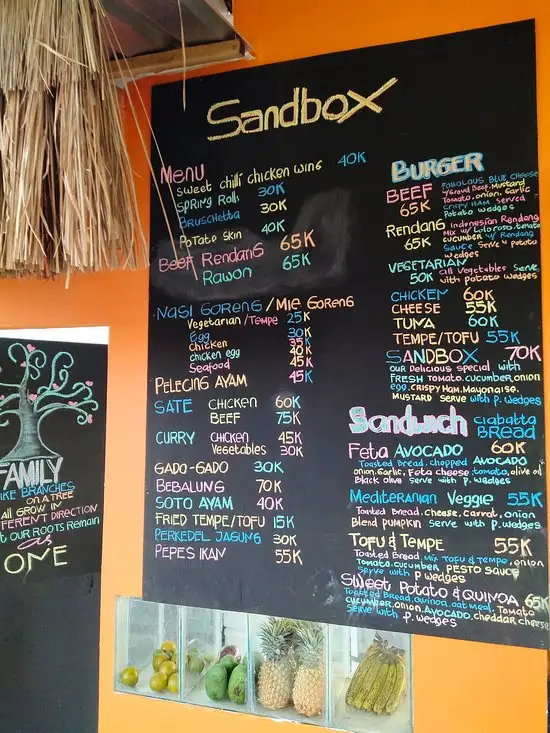 Sandbox
Menu
Sweet chilli chicken wing 40K
Spring Rolls 30K
Bruschetta 30K
Potato skin 40K
Beef Rendang 65K
Rawon 65K
Nasi Goreng / Mie Goreng
Vegetarian / Tempe 25K
Egg 30K
Chicken 35K
chicken egg 40K
Seafood 45K
Pelecing Ayam 45K
Sate Chicken 60K
Beef 75K
Curry Chicken 45K
Vegetables 30K
Gado-Gado 30K
Bebalung 70K
Soto Ayam 40K
Fried Tempe/Tofu 15K
Perkedel Jagung 30K
Pepes Ikan 55K
Burger
Beef Fabolous Blue Cheese
Ground Beef, Mustard
65K Tomato, onion, Garlic
Crispy Ham Served
Potato wedges
Rendang Indonesian Rendang
Mix w/ Loloroso, tomato
65K cucumber w/ Rendang
Sauce Serve w potato
wedges
Vegetarian
50K all vegetables Serve
with potato wedges
Chicken 60K
Cheese 55K
Tuna 60K
Tempe/Tofu 55K
Sandbox 70K
our Delicious special with
Fresh Tomato, cucumber, onion
egg, crispy Ham, Mayonaise,
Mustard Serve with p. wedges
Sandwich ciabatta
Bread
Feta Avocado 60K
Toasted Bread, chopped Avocado
onion, Garlic, Feta cheese tomato, olive oil
Black olive Serve with p. wedges
Mediteranian Veggie 55K
Toasted Bread, cheese, carrot, onion
Blend pumpkin Serve with p. wedges
Tofu & Tempe 55K
Toasted Bread, Mix Tofu & Tempe, onion
Tomato, cucumber, Pesto Sauce
Serve with p wedges
Sweet Potato & Quinoa 65K
Toasted Bread, Quinoa, oatmeal, Tomato
cucumber, onion, Avocado, cheddar cheese
Serve with p. wedges
Family
ike Branches
on a tree
all grow in
fferent direction
t our Roots Remain
as
One